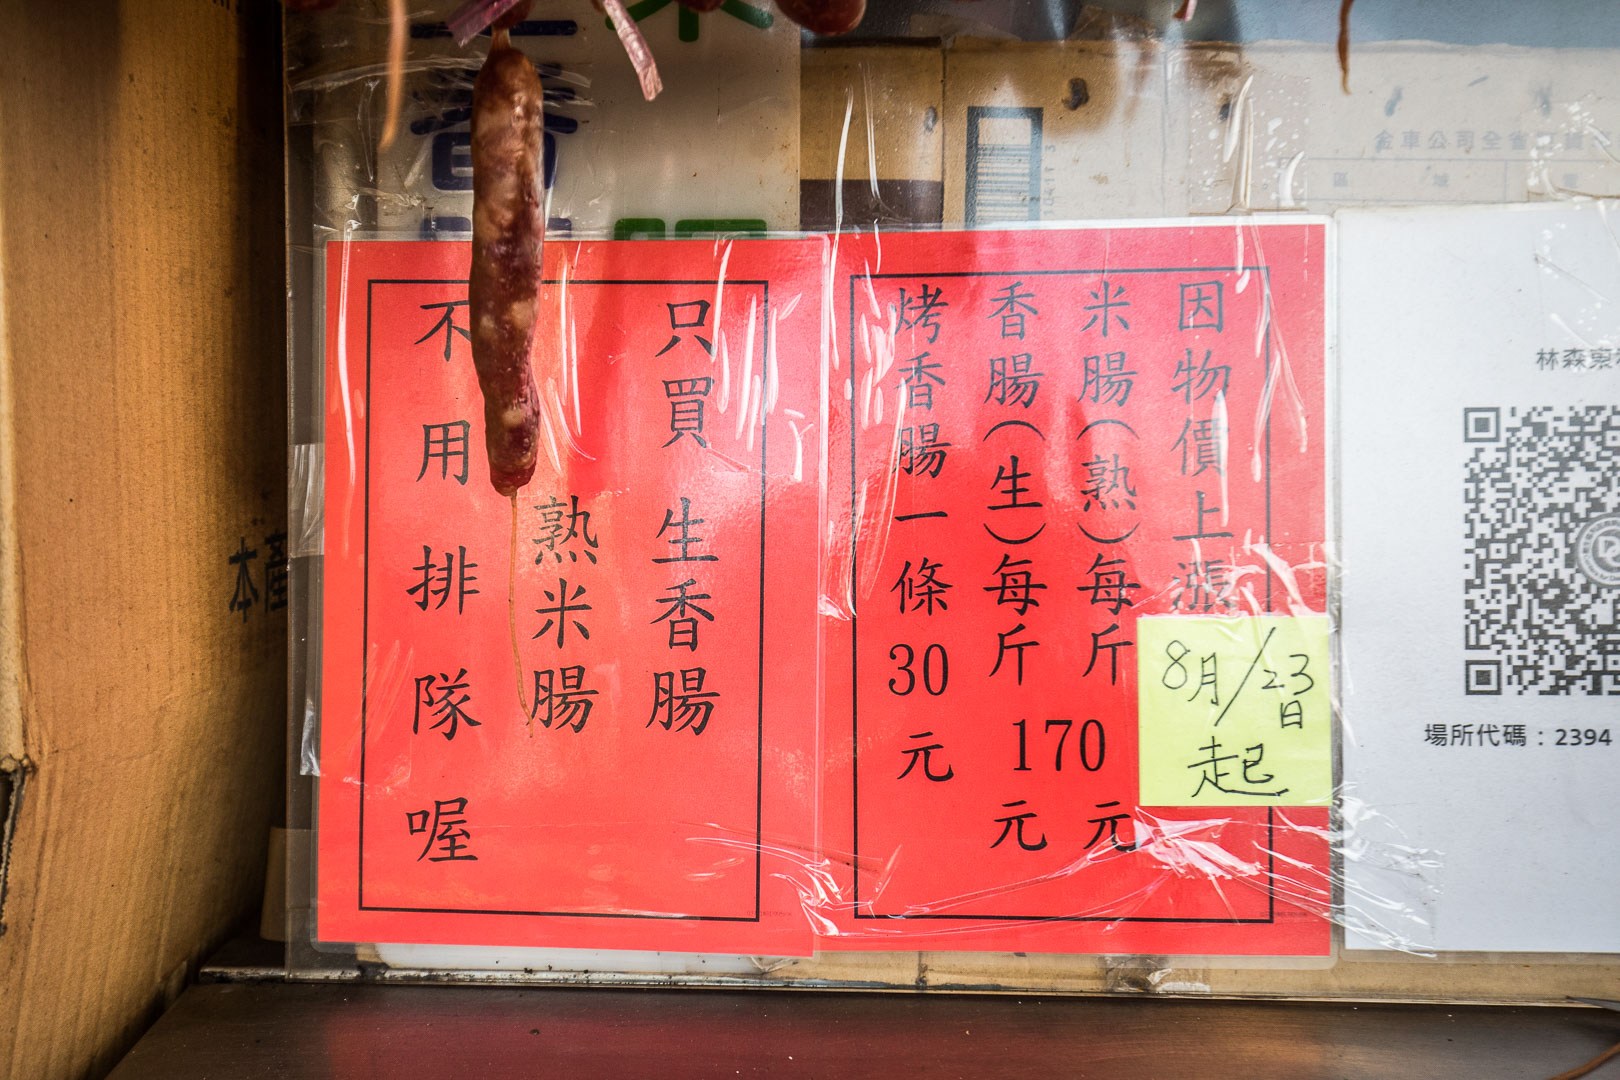 因物價上漲
米腸(熟)每斤170元
香腸(生)每斤170元
烤香腸一條30元
8月/23日
起
只買生香腸
熟米腸
不用排隊喔
金車公司全省
場所代碼：2394
本產